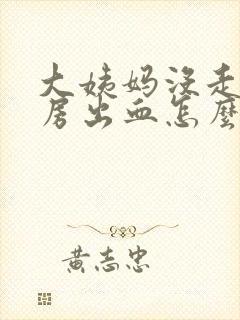 大姨妈没走
房出血怎麼
黄志忠